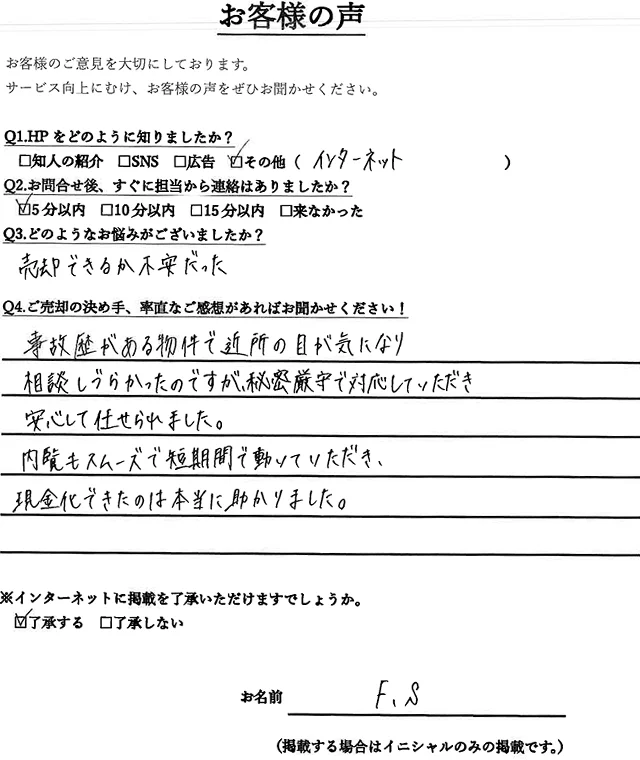 お客様の声
お客様のご意見を大切にしております。
サービス向上にむけ、お客様の声をぜひお聞かせください。
Q1.HPをどのように知りましたか？
□知人の紹介 □SNS □広告 ☑その他（ インターネット ）
Q2.お問合せ後、すぐに担当から連絡はありましたか？
☑5分以内 □10分以内 □15分以内 □来なかった
Q3.どのようなお悩みがございましたか？
売却できるか不安だった
Q4.ご売却の決め手、率直なご感想があればお聞かせください！
事故歴がある物件で近所の目が気になり
相談しづらかったのですが、秘密厳守で対応していただき
安心して任せられました。
内覧もスムーズで短期間で動いていただき、
現金化できたのは本当に助かりました。
※インターネットに掲載を了承いただけますでしょうか。
☑了承する □了承しない
お名前 F.S
（掲載する場合はイニシャルのみの掲載です。）